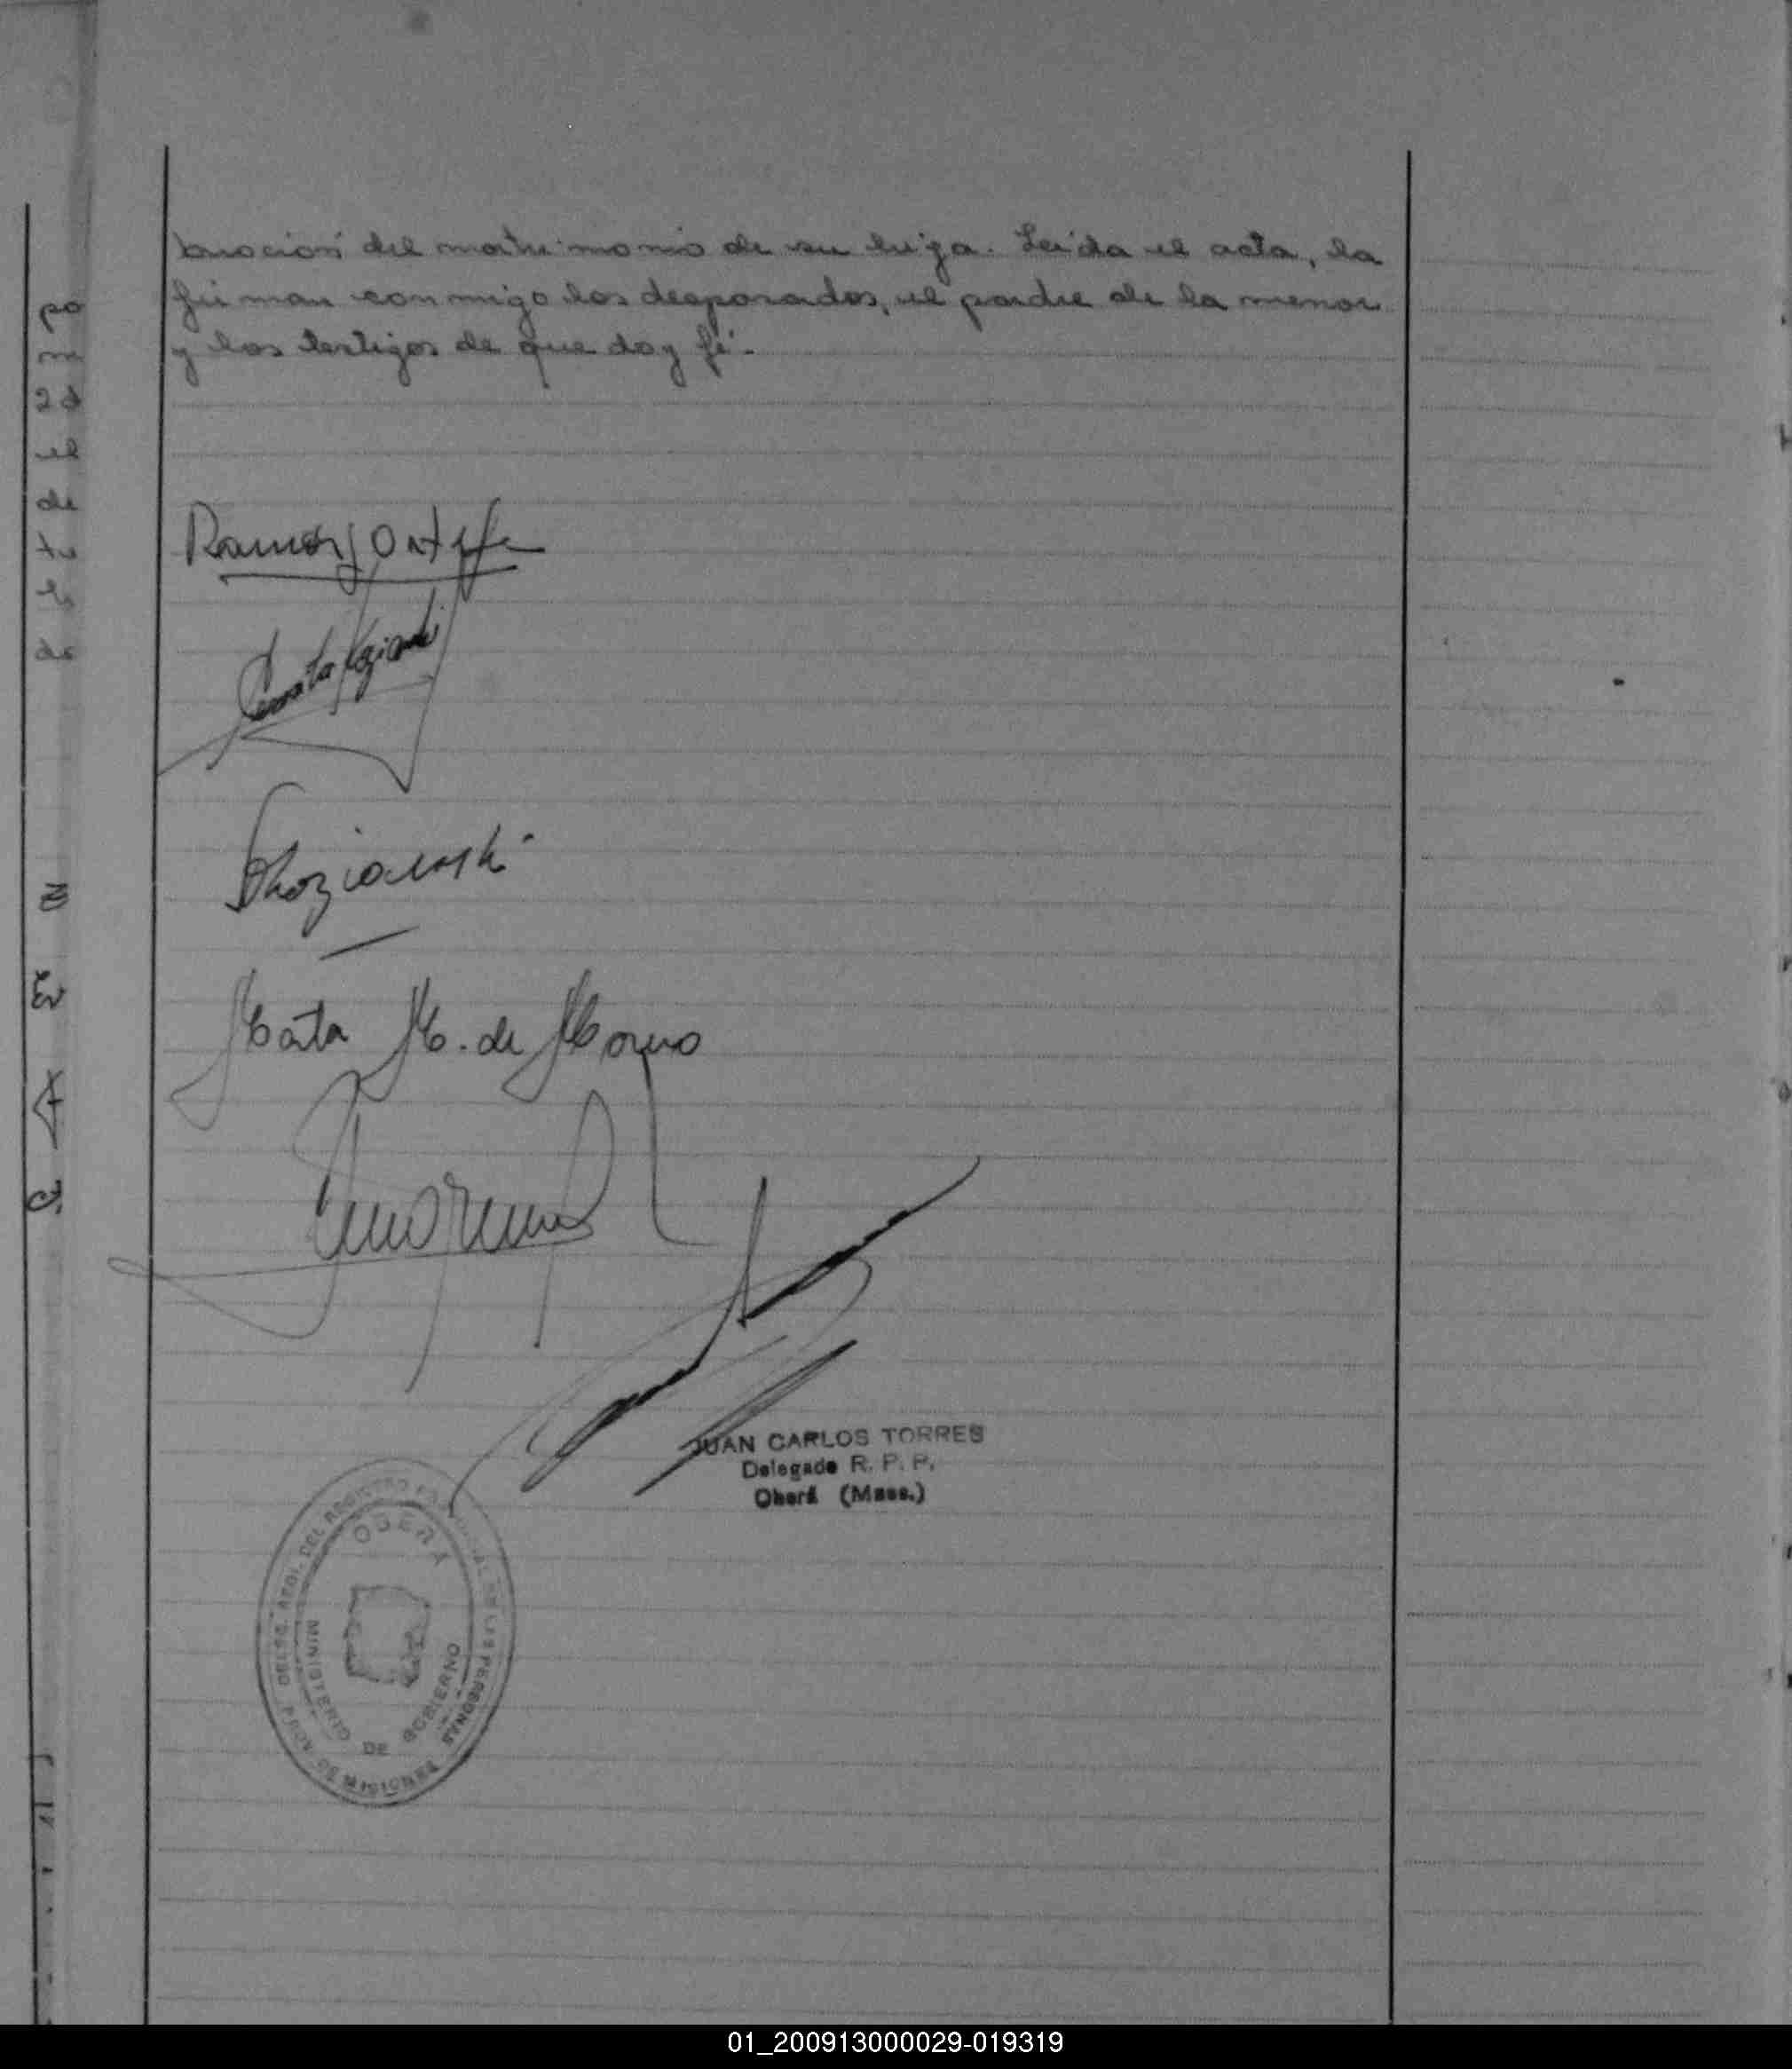 bración del matrimonio de su hija. Leída el acta, la
firman conmigo los desposados, el padre de la menor
y los testigos de que doy fé.-
Ramón Ortega
Kozianski
Kozianski
Marta M. de Moreno
JUAN CARLOS TORRES
Delegado R. P. P.
Oberá (Mnes.)
OBERA
MINISTERIO DE GOBIERNO
DEL REGISTRO PROVINCIAL DE LAS PERSONAS
PROV. DE MISIONES
po
m
el
de
01_200913000029-019319